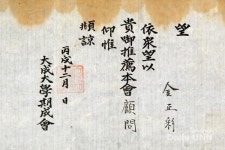 望
金正彩
依衆望以
貴卿推薦本會顧問
仰惟
頫諒
丙戌十二月 日
大成大學期成會